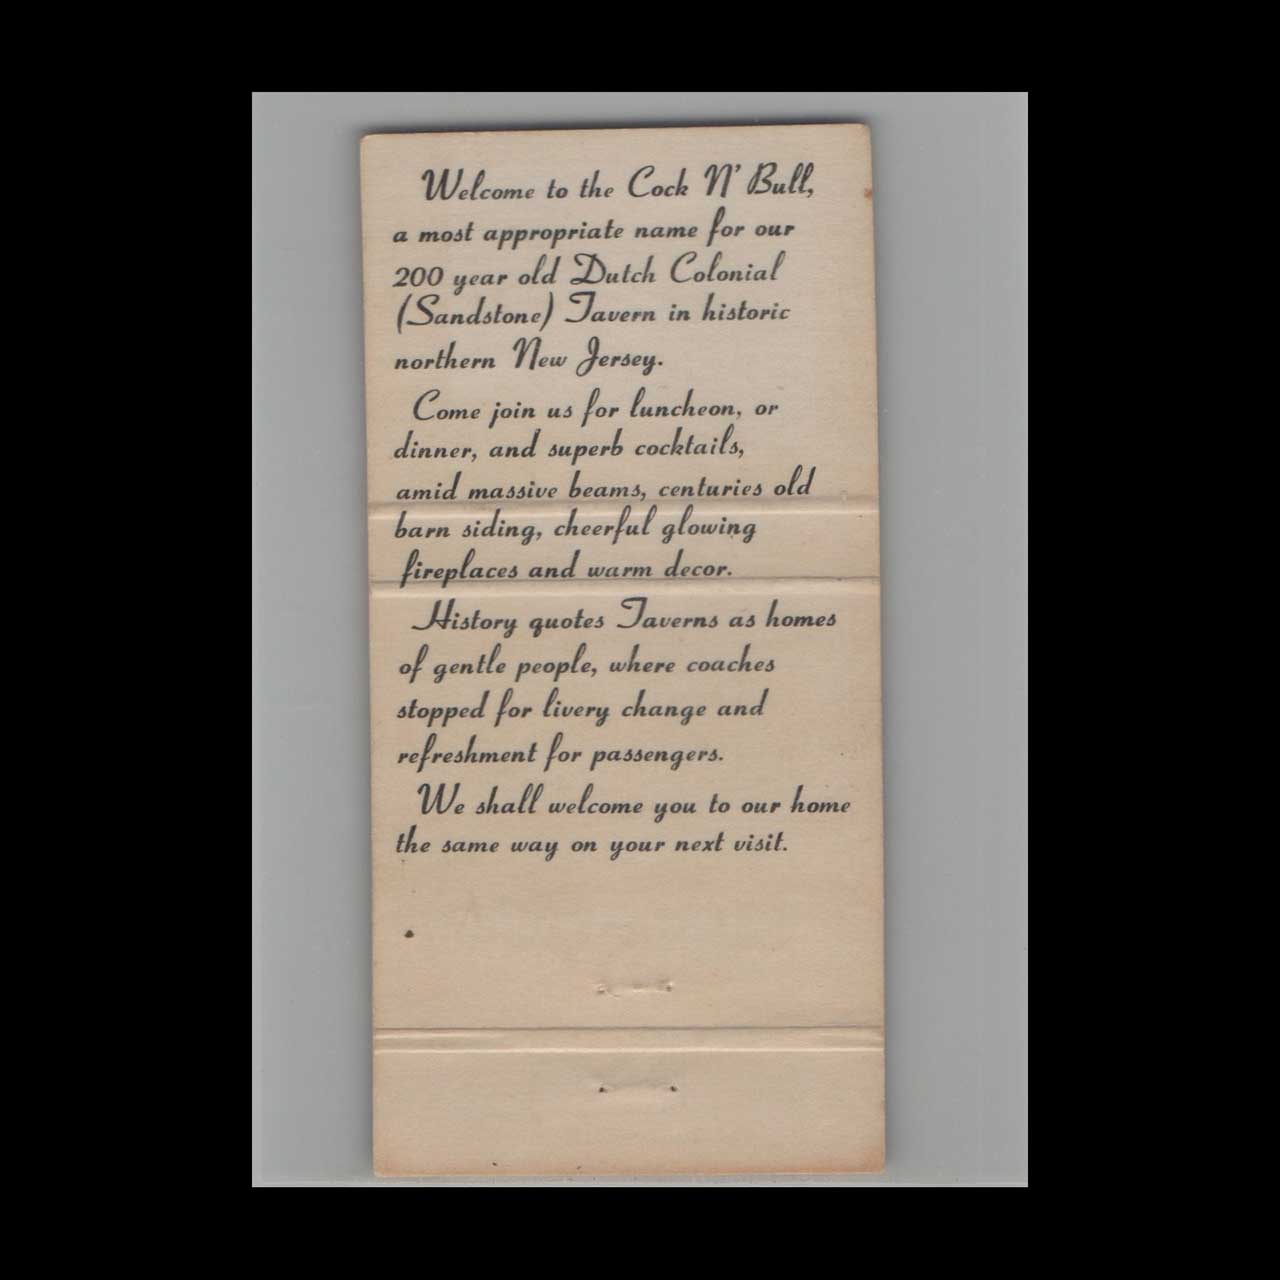 Welcome to the Cock N' Bull,
a most appropriate name for our
200 year old Dutch Colonial
(Sandstone) Tavern in historic
northern New Jersey.
Come join us for luncheon, or
dinner, and superb cocktails,
amid massive beams, centuries old
barn siding, cheerful glowing
fireplaces and warm decor.
History quotes Taverns as homes
of gentle people, where coaches
stopped for livery change and
refreshment for passengers.
We shall welcome you to our home
the same way on your next visit.